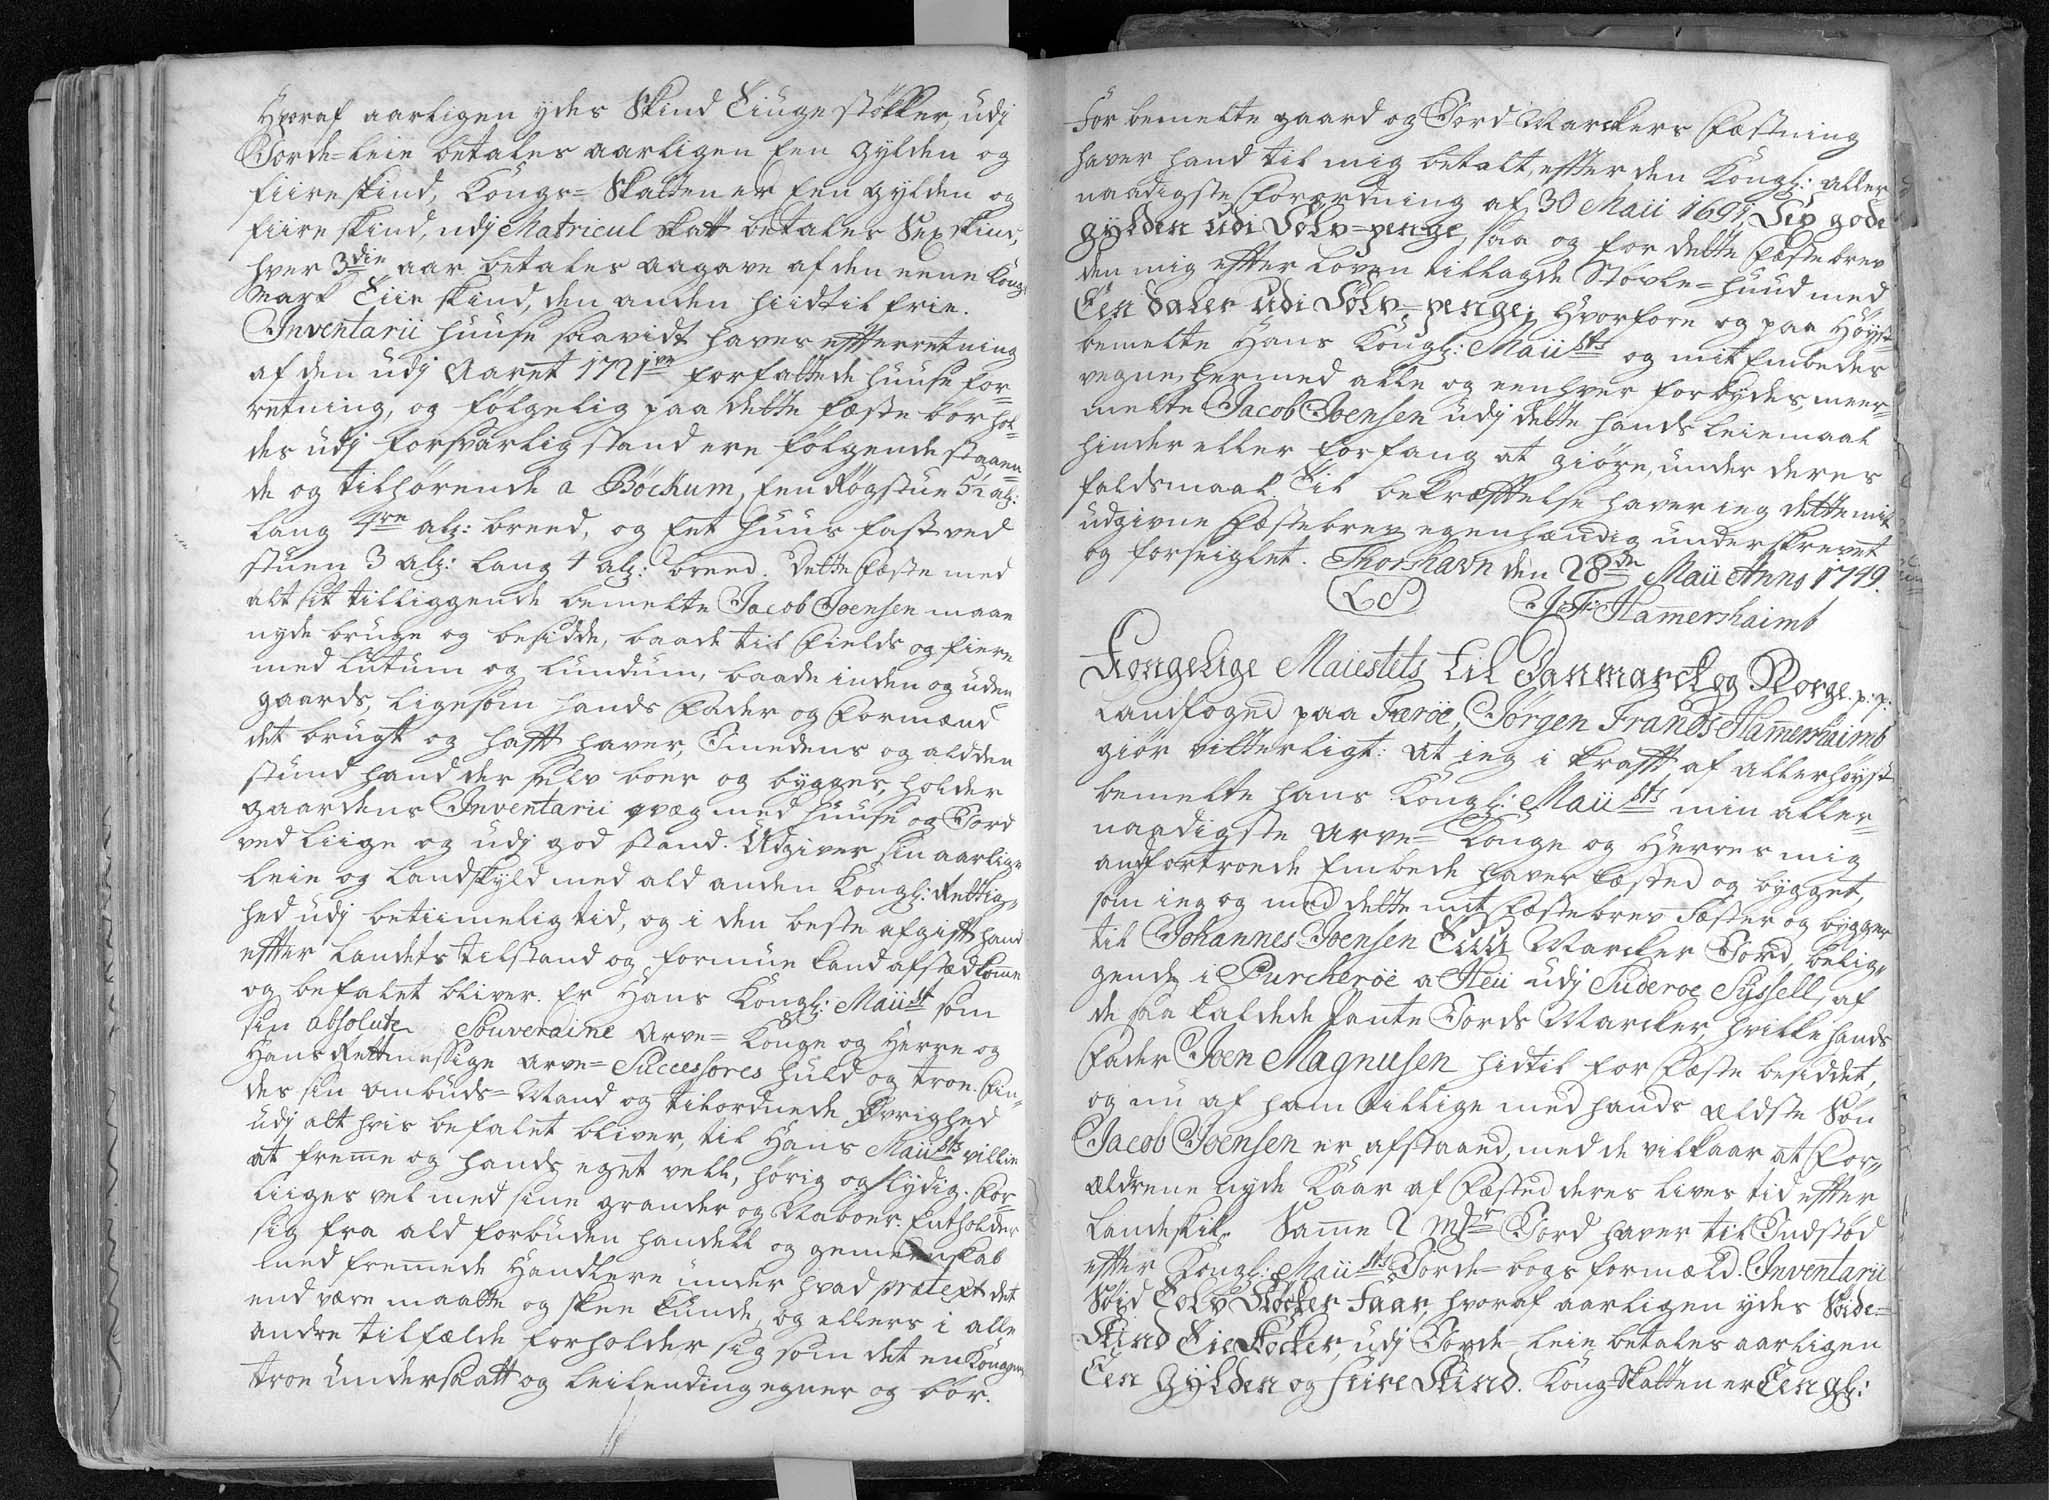 Hvoraf aarligen ydes Skind Tiuge støkker, udj
Jorde=leie betales aarligen Een gylden og
fiire skind, Kongs=Skatten er Een gylden og
fiire skind, udj Matricul skatt betales Sex skind,
hver 3die aar betales aagave af den eene Kongs
Mark Tiie skind, den anden hiidtil frie.
Inventarii huuse saavidt haves effterretning
af den udj Aaret 1721 forfattede huuse for=
retning, og følgelig paa dette fæste bør hol=
des udj forsvarlig stand ere følgende staaen=
de og tilhørende a Böckum, Een Røgstue 5½ alz:
lang 4re alz: breed, og Eet huus fast ved
stuen 3 alz: lang 4 alz: breed. Dette fæste med
alt sit tilliggende bemelte Jacob Joensen maae
nyde bruge og besidde, baade til Fields og fiere
med lutum og lundum, baade inden og uden
gaards, ligesom hands Fader og Formænd
det brugt og hafft haver, Imedens og ald den
stund hand der selv boer og bygger, holder
gaardens Inventarii qvæg med huuse og Jord
ved liige og udj god stand. Udgiver sin aarlige
leie og landskyld med ald anden Kongl: Rettig=
hed udj betiimelig tid, og i den beste afgifft hand
effter landets tilstand og formue kand afsted komme
og befalet bliver. Er Hans Kongl: Maiist som
sin absolute Souveraine Arve=Konge og Herre og
Hans Rettmessige Arve=Successores huld og troe. Sin=
des sin ombuds=Mand og tilordnede Øvrighed
udj alt hvis befalet bliver, til Hans Maiists villie
at freme og hands eget vell, hørig og lydig. For=
liiges vel med sine grander og Naboer. Entholder
sig fra ald forbuden handell og gemeenskab
med fremede Handlere under hvad prætext det
end være maatte og skee kunde, og ellers i alle
andre tilfælde forholder sig som det en Kongens
troe Undersatt og leilending egner og bør.
For bemelte gaard og Jord=Marckers Fæstning
haver hand til mig betalt, effter den Kongl: aller
naadigste Forordning af 30 Maii 1691, Sex gode
gylden udi Sølv=penge, saa og for dette fæstebrev
den mig effter loven tillagde Støvle=huud med
Een daler udi Sølv=penge; Hvorfore og paa Høyst=
bemelte Hans Kongl: Maiists og mit Embedes
vegne, hermed alle og eenhver forbydes, meer=
melte Jacob Joensen udj dette hands leiemaal
hinder eller forfang at giøre, under deres
faldsmaal. Til bekræfftelse haver ieg dette mit
udgivne Fæstebrev egenhændig underskrevet
og forseiglet. Thorshavn den 28de Maii Anno 1749.
LS J. F. Hamershaimb
Kongelige Maiestets til Danmarck og Norge. p: p:
Landfoged paa Færöe, Jörgen Frands Hamershaimb
giør vitterligt: at ieg i krafft af allerhøyst
bemelte hans Kongl: Maiists min aller=
naadigste Arve=Konge og Herres mig
anfortroede Embede haver fæsted og bygget,
som ieg og med dette mit fæstebrev fæster og bygger
til Johannes Joensen Tvu Marcker Jord, belig=
gende i Purcheröe a Heü udj Suderoe Syssell, af
de saa kaldede Kante Jords Marcker, hvilke hands
Fader Joen Magnusen hidtil for Fæste besiddet,
og nu af ham tillige med hands eldste Søn
Jacob Joensen er afstaaed, med de vilkaar at For=
ældrene nyde Kaar af Fæsted deres lives tid effter
landeskik. Same 2 Mkr Jord haver til Indstød
effter Kongl: Maiists Jorde=bogs formæld. Inventarii
Söid Tolv Stöcker Faar, hvoraf aarligen ydes Söide=
Skind Tie Stöcker, udj Jorde=leie betales aarligen
Een Gylden og fiire Skind. Kong Skatten er Een gl: